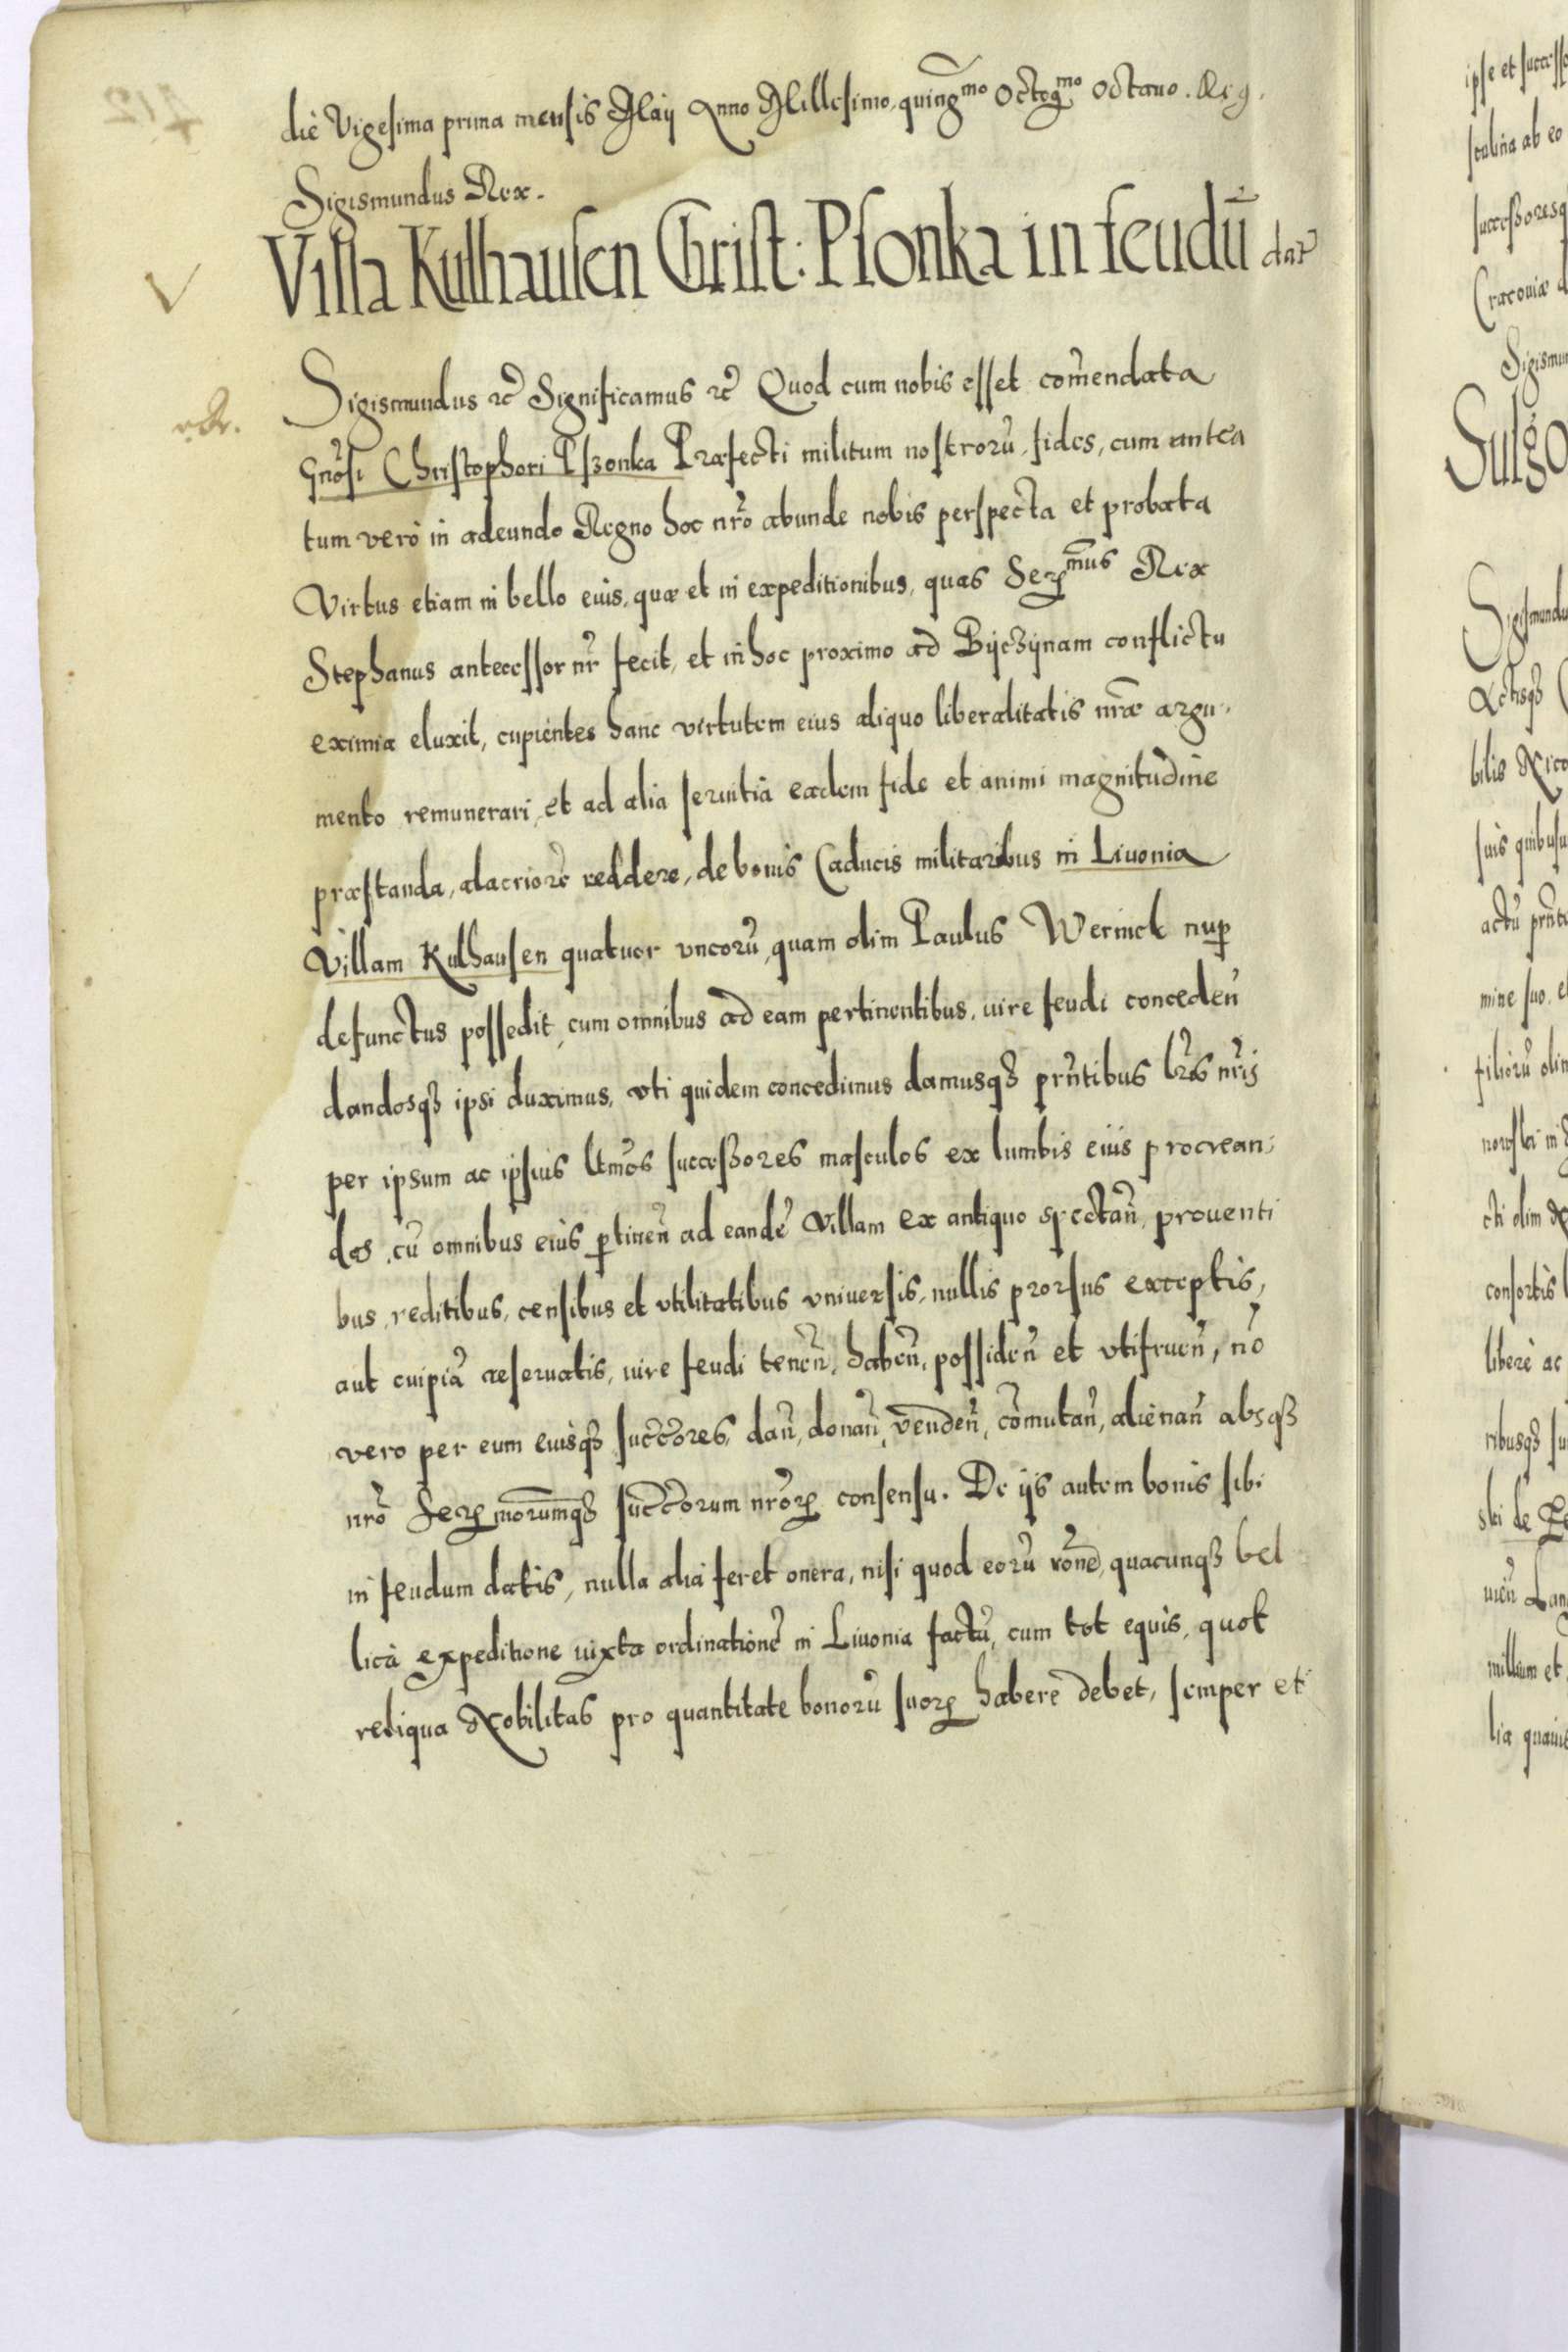 die Vigesima prima mensis Maij Anno Millesimo, quing^mo Octog^mo Octauo. Reg.
Sigismundus Rex.
Villa Kulhausen Christ: Psonka in feudū dat
Sigismundus &c Significamus &c Quod cum nobis esset com̄endata
Gn̄rosi Christophori Pszonka Præfecti militum nostrorū, fides, cum antea
tum vero in adeundo Regno hoc nr̄o abunde nobis perspecta et probata
Virtus etiam in bello eius, quæ et in expeditionibus, quas Ser^mus Rex
Stephanus antecessor nr̄ fecit, et in hoc proximo ad Byczynam conflictu
eximia eluxit, cupientes hanc virtutem eius aliquo liberalitatis nr̄æ argu-
mento remunerari, et ad alia seruitia eadem fide et animi magnitudine
præstanda, alacriorē reddere, de bonis Caducis militaribus in Liuonia
Villam Kulhausen quatuor vncorū, quam olim Paulus Werinck nup
defunctus possedit, cum omnibus ad eam pertinentibus, iure feudi conceden̄
dandosqȝ ipsi duximus, vti quidem concedimus damusqȝ prn̄tibus lr̄is nr̄is
per ipsum ac ipsius ltmōs successores masculos ex lumbis eius procrean-
dos, cū omnibus eius ptinen̄ ad eandē Villam ex antiquo spectan̄, prouenti
bus, reditibus, censibus et vtilitatibus vniuersis, nullis prorsus exceptis,
aut cuipiā reseruatis, iure feudi tenen̄, haben̄, possiden̄ et vtifruen̄, nō
vero per eum eiusqȝ succ̄ores, dan̄, donan̄, venden̄, com̄utan̄, alienan̄ absqȝ
nr̄o Ser morumqȝ succ̄orum nr̄orꝝ consensu. De ijs autem bonis sibi
in feudum datis, nulla alia feret onera, nisi quod eorū rōne, quacunqȝ bel
lica expeditione iuxta ordinationē in Liuonia factū, cum tot equis, quot
reliqua Nobilitas pro quantitate bonorū suorꝝ habere debet, semper et
ipse et success
sculina ab eo
successoresq
Cracouiæ d
Sigismun
Sulgo
Sigismundu
Actisqȝ
bilis Nico
suis quibusu
actū prn̄t
mine suo, e
filiorū olim
nouski in
cti olim N
consortis
libere ac
ribusqȝ su
ski de
uien̄ Lan
millium et
lia quauis